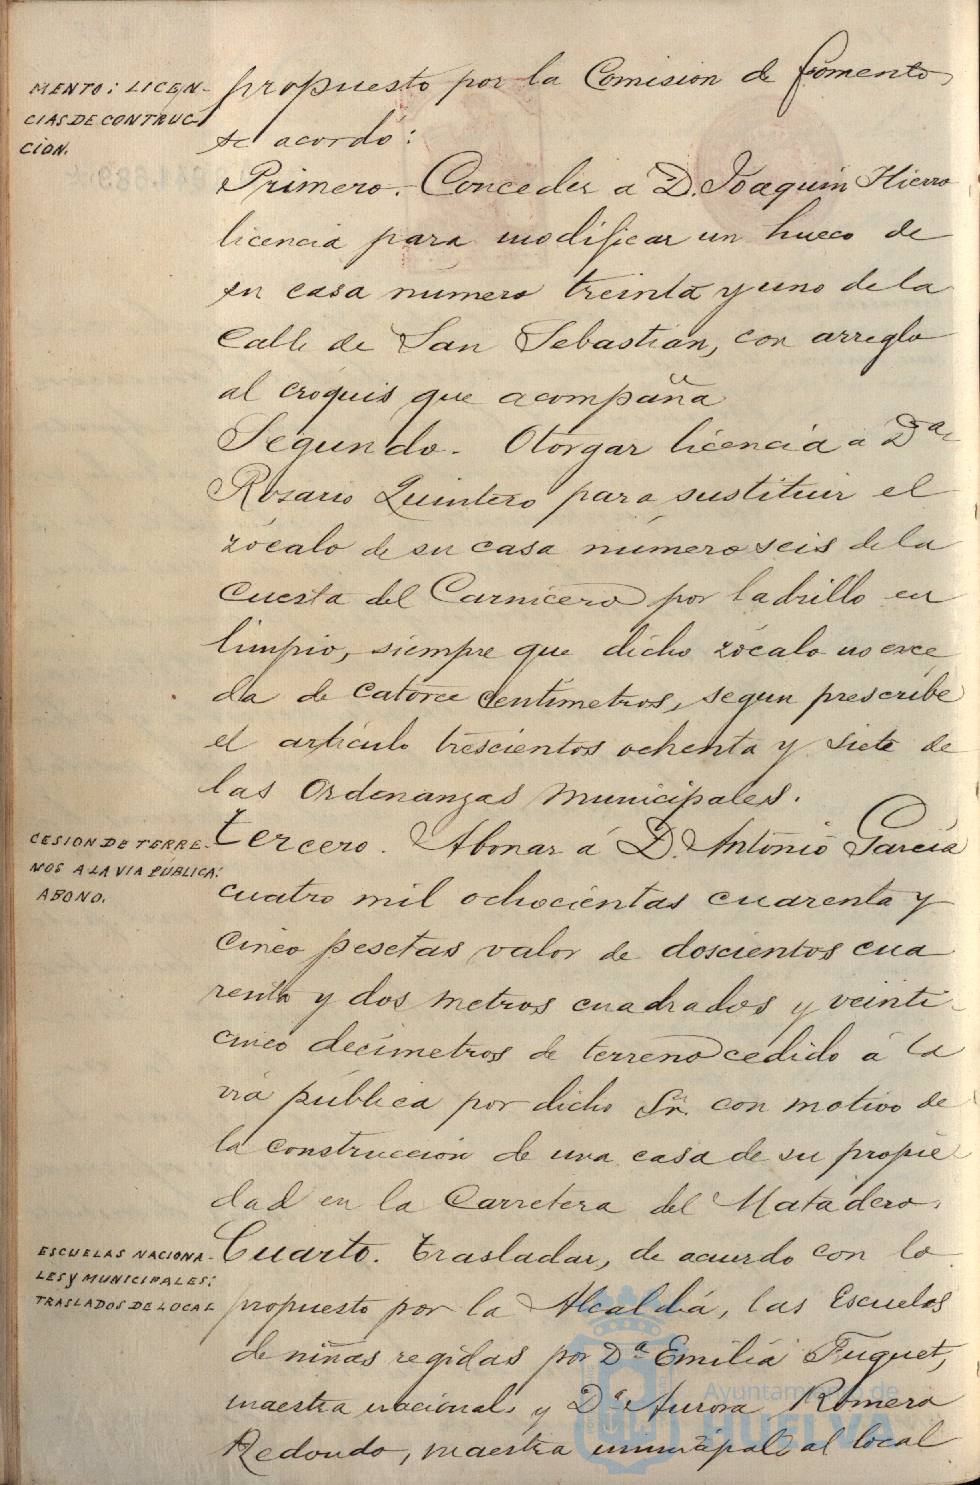 MENTO: LICEN-
CIAS DE CONTRUC-
CIÓN.
propuesto por la Comision de fomento,
se acordó:
Primero.- Conceder a D. Joaquin Hierro
licencia para modificar un hueco de
su casa número treinta y uno de la
Calle de San Sebastian, con arreglo
al croquis que acompaña
Segundo. Otorgar licencia a Dª
Rosario Quintero para sustituir el
zócalo de su casa número seis de la
cuesta del Carnicero por ladrillo en
limpio, siempre que dicho zócalo no exce
da de catorce centímetros, segun prescribe
el artículo trescientos ochenta y siete de
las Ordenanzas Municipales.
CESION DE TERRE-
NOS A LA VIA PÚBLICA:
ABONO.
tercero. Abonar á D. Antonio García
cuatro mil ochocientas cuarenta y
cinco pesetas valor de doscientos cua
renta y dos metros cuadrados y veinti-
cinco decímetros de terreno cedido á la
vía pública por dicho Sr. con motivo de
la construccion de una casa de su propie
dad en la Carretera del Matadero.
ESCUELAS NACIONA-
LES Y MUNICIPALES:
TRASLADOS DE LOCAL
Cuarto. Trasladar, de acuerdo con lo
propuesto por la Alcaldía, las Escuelas
de niñas regidas por Dª Emilia Fuguet,
maestra nacional, y Dª Aurora Romero
Redondo, maestra municipal al local
Ayuntamiento de
HUELVA